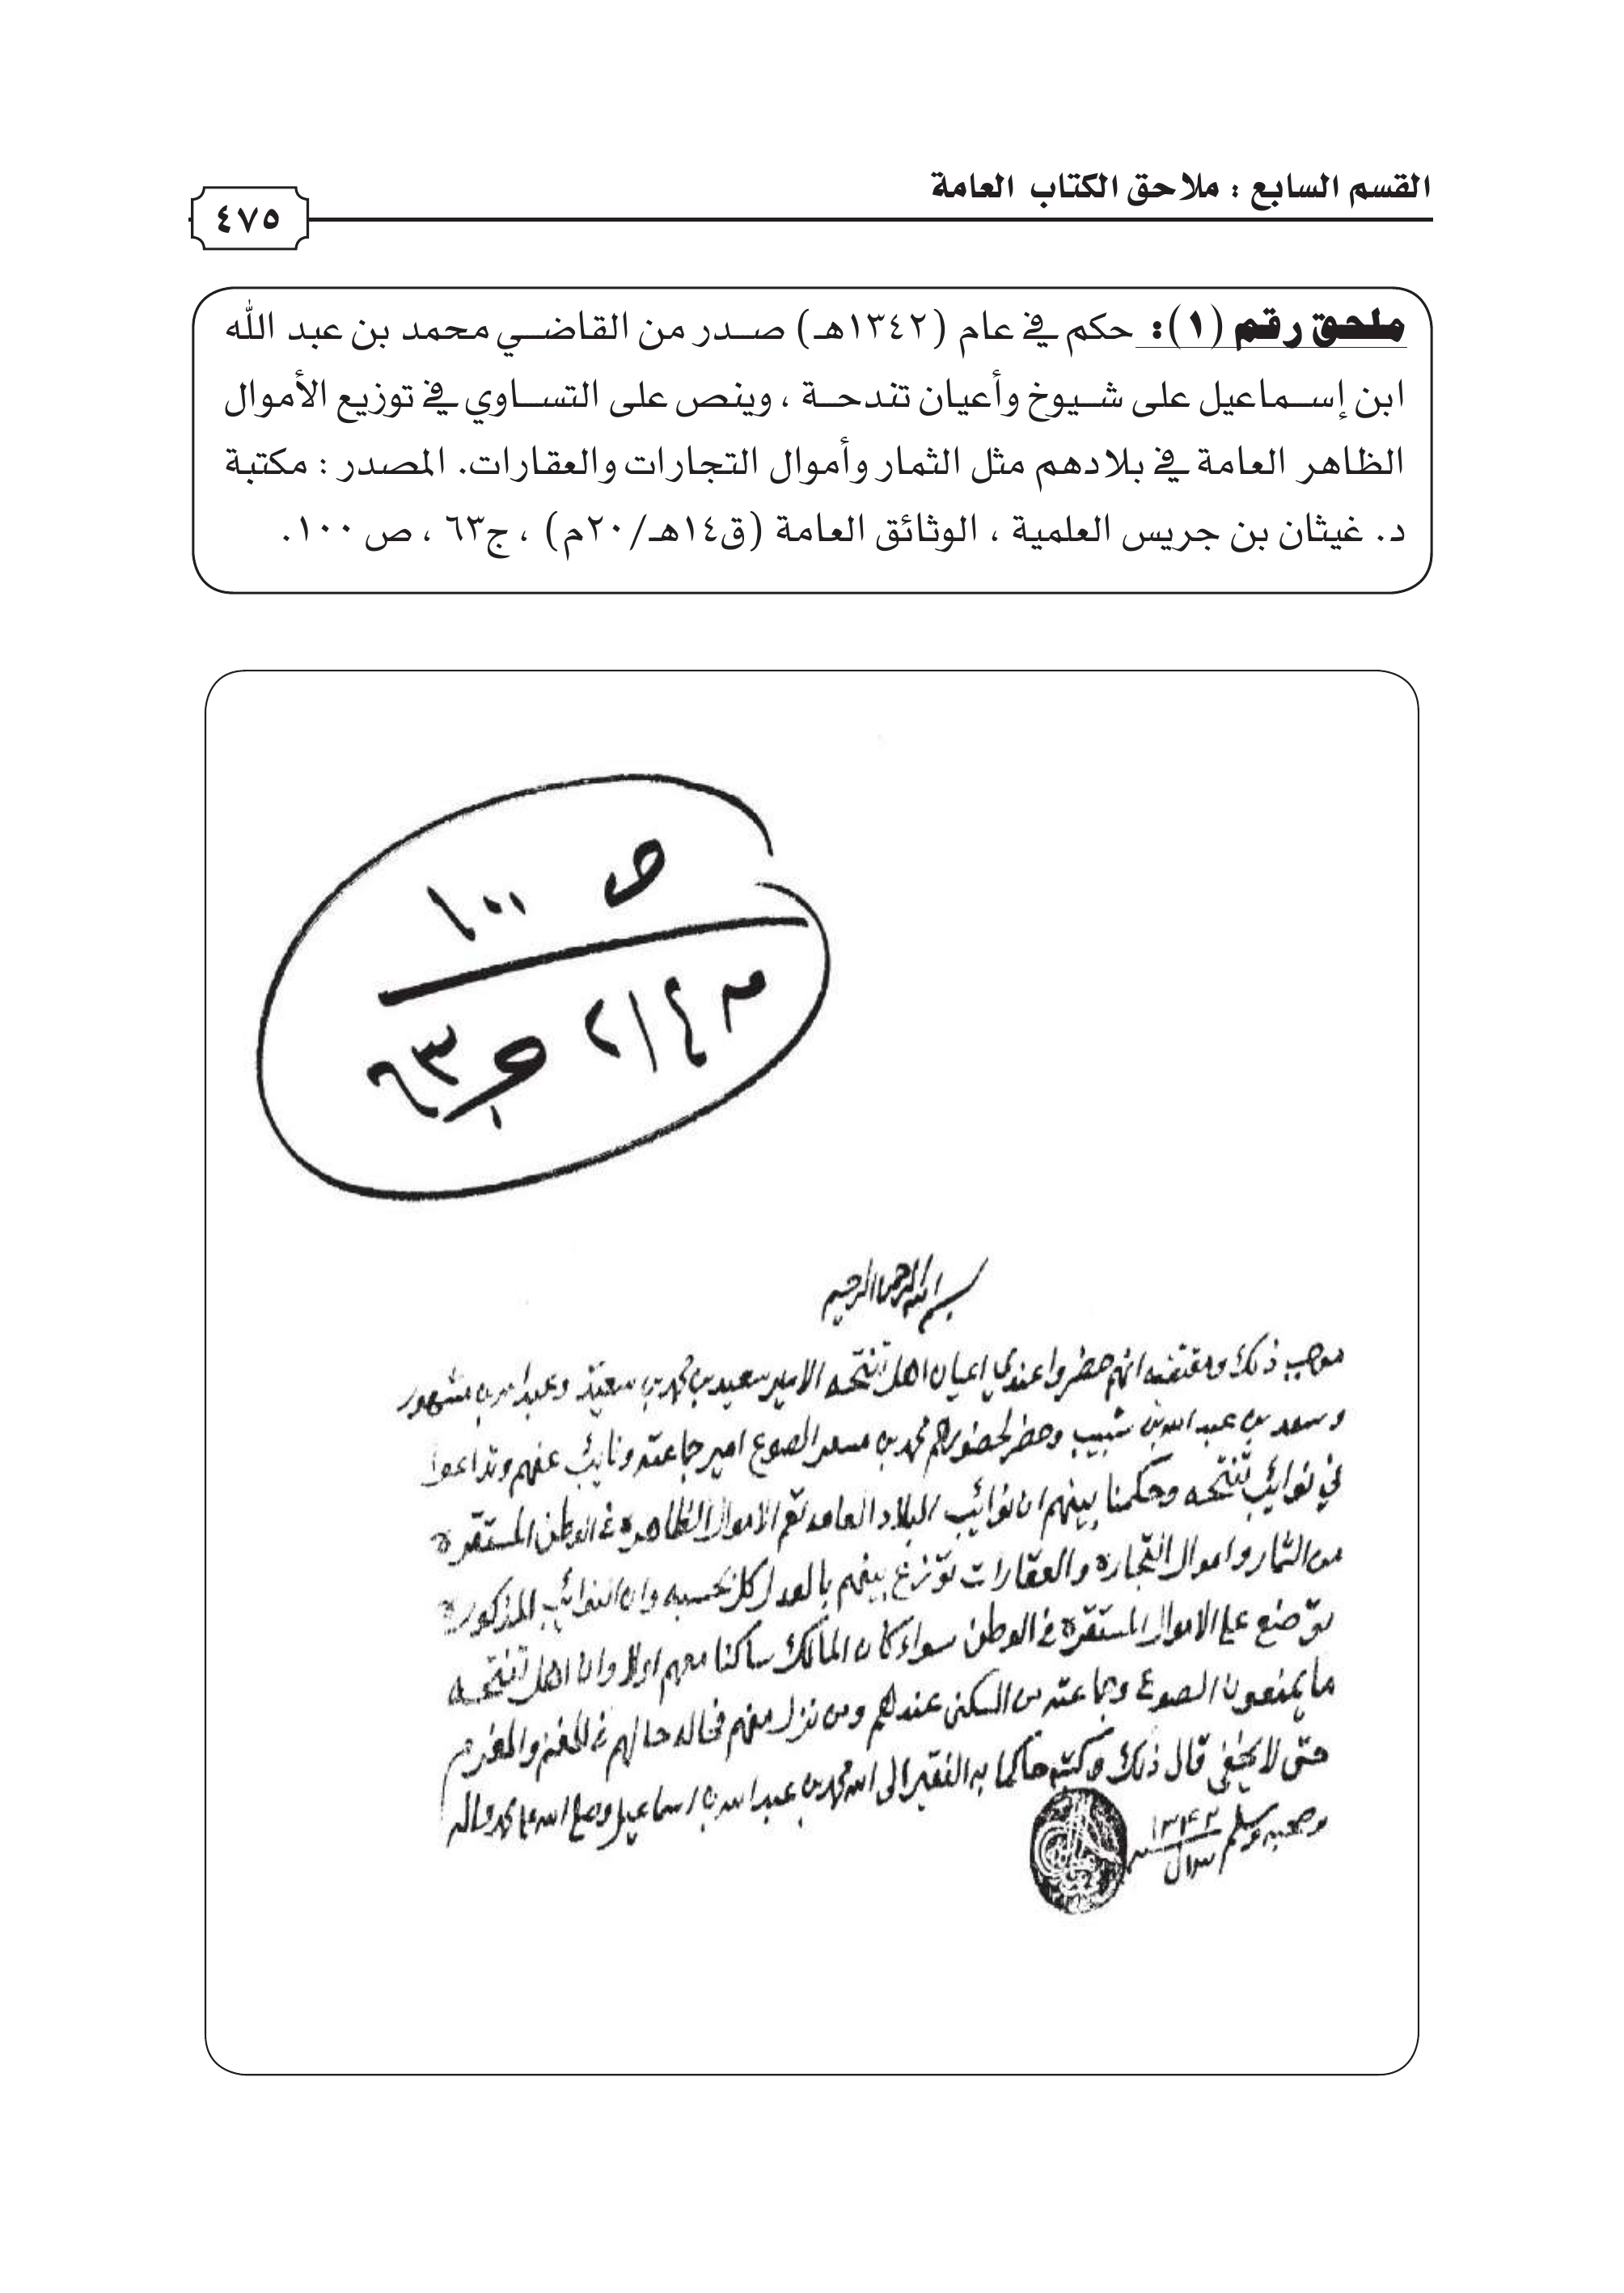 القسم السابع : ملاحق الكتاب العامة
٤٧٥
ملحق رقم (١): حكم في عام (١٣٤٢هـ) صدر من القاضي محمد بن عبد الله
ابن إسماعيل على شيوخ وأعيان تندحة ، وينص على التساوي في توزيع الأموال
الظاهر العامة في بلادهم مثل الثمار وأموال التجارات والعقارات. المصدر : مكتبة
د. غيثان بن جريس العلمية ، الوثائق العامة (ق١٤هـ/٢٠م) ، ج٦٣ ، ص ١٠٠.
ص ١٠٠
ج ٦٣
بسم الله الرحمن الرحيم
موجب ذلك ومقتضه انهم حضروا عندي اعيان اهل تنتحه الامير سعيد بن محمد بن سعيد وعبدالله بن مشهور
وسعد بن عبدالله بن شبيب وحضر لحضورهم محمد بن مسعد الصوع امير جماعته ونايب عنهم وتداعوا
في نوائب تنتحه وحكمنا بينهم ان نوائب البلاد العامه تعم الاموال الظاهرة في الوطن المستقرة
من الثمار واموال التجارة والعقارات توزع بينهم بالعدل كل بحسبه وان النوائب المذكورة
توضع على الاموال المستقرة في الوطن سواء كان المالك ساكنا معهم اولا وان اهل تنتحه
ما يمنعون الصوع وجماعته من السكنى عندهم ومن نزل منهم فحاله حالهم في المغنم والمغرم
حتى لا يخفى قال ذلك وكتبه حاكما به الفقير الى الله محمد بن عبدالله بن اسماعيل وصلى الله على محمد واله
وصحبه وسلم ١٣٤٢